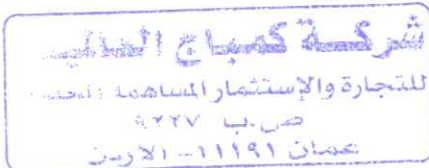 شركة كمباج الدلي
للتجارة والإستثمار المساهمة
ص.ب ٩٢٢٧
عمان ١١١٩١ - الاردن